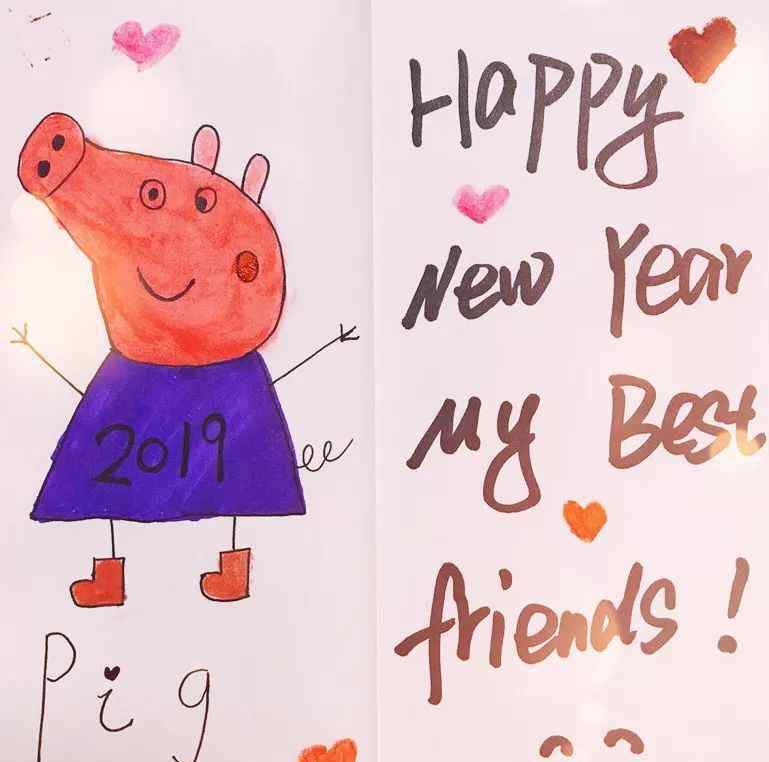 2019
Pig
Happy
New Year
My Best
friends!